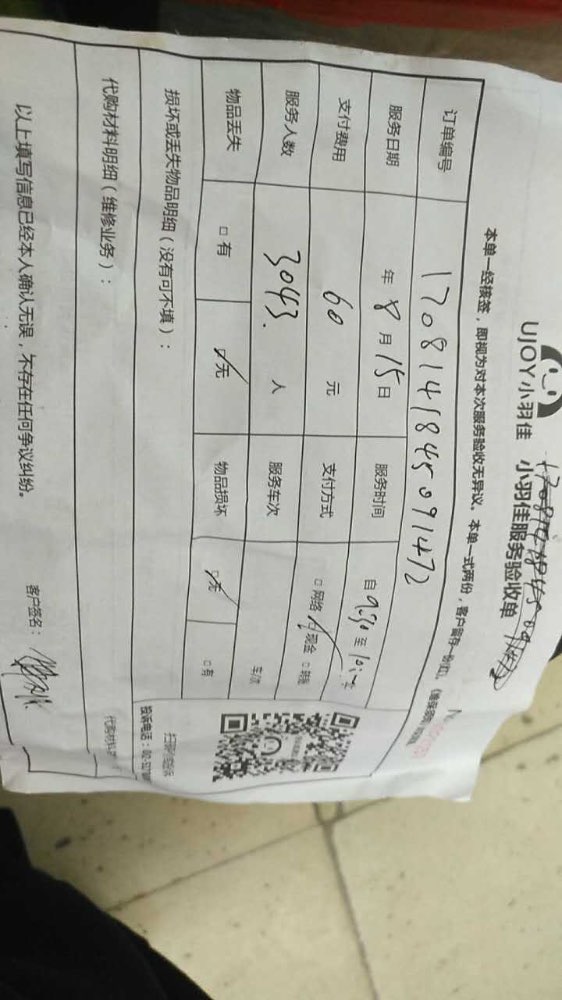 UJOY小羽佳 小羽佳服务验收单
本单一经核签，即视为对本次服务验收无异议。本单一式两份，客户留存一份
订单编号 1708141845091472
服务日期 年 8 月 15 日 服务时间 自 9:30 至
支付费用 60 元 支付方式 □网络 □现金 □转账
服务人数 3043. 人 服务车次 车/次
物品丢失 □有 □无 物品损坏 □无 □有
损坏或丢失物品明细（没有可不填）：
扫描
投诉电话：
代购材料明细（维修业务）：
代购材料
以上填写信息已经本人确认无误，不存在任何争议纠纷。
客户签名：